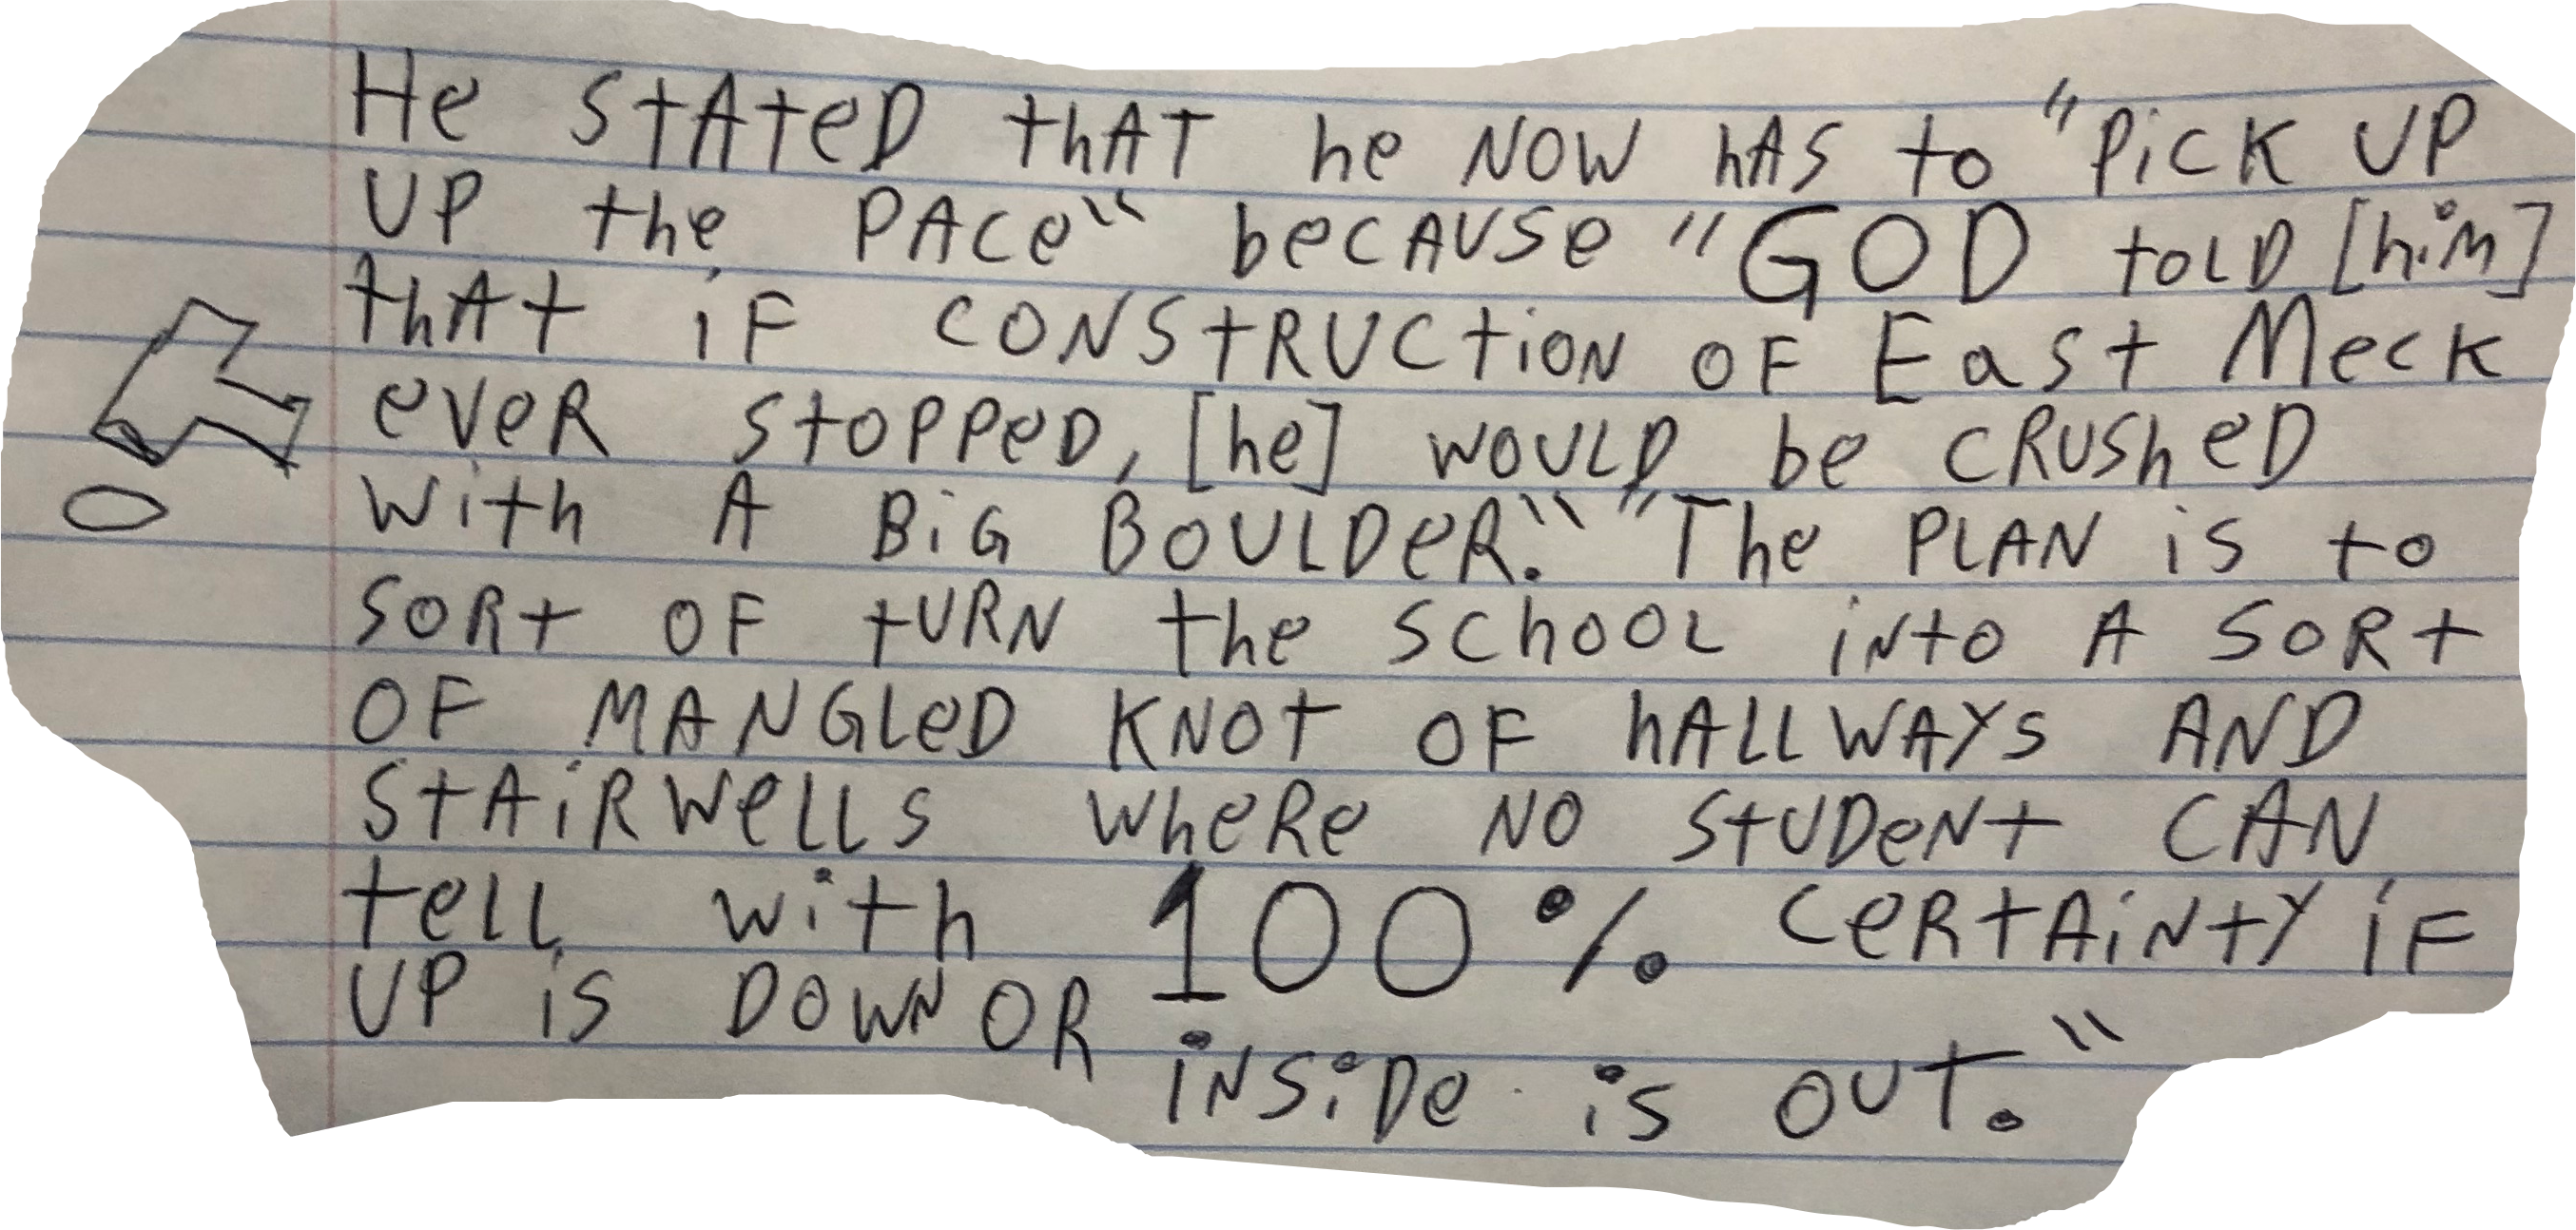 He stAteD thAT he NOW hAS to "PiCK UP
UP the PACe" beCAUSe "GOD tOLD [hiM]
thAt iF CONStRUCtiON OF East MecK
eveR StOPPeD, [he] WOULD be CRUSheD
With A BiG BOULDeR." "The PLAN iS to
SORt OF tURN the SChOOL iNtO A SORt
OF MANGLeD KNOt OF hALLWAYS AND
StAiRWeLLS WheRe NO StUDeNt CAN
teLL With 100% CeRtAiNtY iF
UP iS DOWN OR iNSiDe iS OUT."